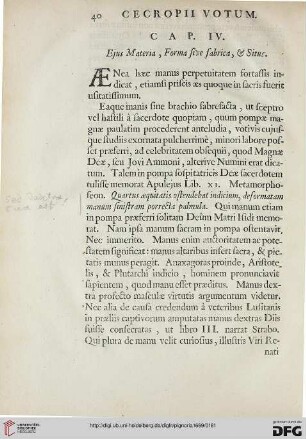 40 CECROPII VOTUM.
CAP. IV.
Ejus Materia, Forma sive fabrica, & Situs.
ÆNea hæc manus perpetuitatem fortassis in-
dicat, etiamsi priscis æs quoque in sacris fuerit
usitatissimum.
Eaque manis sine brachio fabrefacta, ut sceptro
vel hastili à sacerdote quopiam, quum pompæ ma-
gnæ paulatim procederent anteludia, votivis cujus-
que studiis exornata pulcherrimè, minori labore pos-
set præferri, ad celebritatem obsequii, quod Magnæ
Deæ, seu Jovi Ammoni, alterive Numini erat dica-
tum. Talem in pompa sospitatricis Deæ sacerdotem
tulisse memorat Apulejus Lib. XI. Metamorpho-
seon. Quartus æquitatis ostendebat indicium, deformatam
manum sinistram porrecta palmula. Qui manum etiam
in pompa præferri solitam Deûm Matri Isidi memo-
rat. Nam ipsa manum sacram in pompa ostentavit,
Nec immerito. Manus enim auctoritatem ac pote-
statem significat: manus altaribus insert sacra, & pie-
tatis munus peragit. Anaxagoras proinde, Aristote-
lis, & Plutarchi indicio, hominem pronunciavit
sapientem, quod manu esset præditus. Manus dex-
tra profecto masculæ virtutis argumentum videtur.
Nec alia de causa credendum à veteribus Lusitanis
in præliis captivorum amputatas manus dextras Diis
fuisse consecratas, ut libro III. narrat Strabo.
Qui plura de manu velit curiosius, illustris Viri Re-
nati
http://digi.ub.uni-heidelberg.de/diglit/pignoria1669/0181
UNIVERSITÄTS-
BIBLIOTHEK
HEIDELBERG
DFG